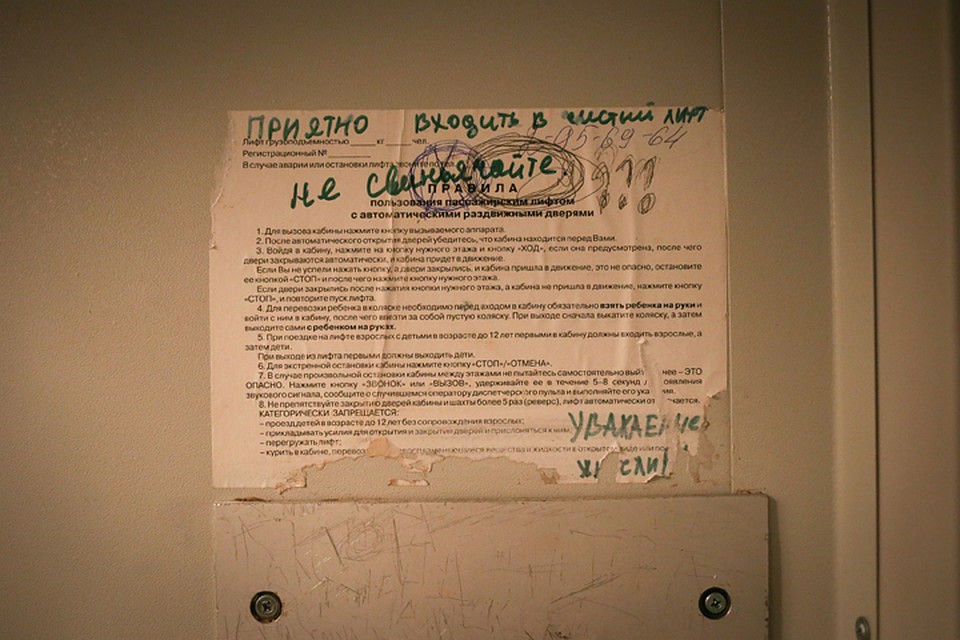 ПРИЯТНО ВХОДИТЬ В чистый ЛИФТ
Лифт грузоподъемностью кг чел.
-95-69-64
Регистрационный №
В случае аварии или остановки лифта звоните по тел.
Не Свинячайте !!!
ПРАВИЛА
пользования пассажирским лифтом
с автоматическими раздвижными дверями
1. Для вызова кабины нажмите кнопку вызываемого аппарата.
2. После автоматического открытия дверей убедитесь, что кабина находится перед Вами.
3. Войдя в кабину, нажмите на кнопку нужного этажа и кнопку «ХОД», если она предусмотрена, после чего
двери закрываются автоматически, и кабина придет в движение.
Если Вы не успели нажать кнопку, а двери закрылись, и кабина пришла в движение, это не опасно, остановите
ее кнопкой «СТОП» и после чего нажмите кнопку нужного этажа.
Если двери закрылись после нажатия кнопки нужного этажа, а кабина не пришла в движение, нажмите кнопку
«СТОП», и повторите пуск лифта.
4. Для перевозки ребенка в коляске необходимо перед входом в кабину обязательно взять ребенка на руки и
войти с ним в кабину, после чего ввезти за собой пустую коляску. При выходе сначала выкатите коляску, а затем
выходите сами с ребенком на руках.
5. При поездке на лифте взрослых с детьми в возрасте до 12 лет первыми в кабину должны входить взрослые, а
затем дети.
При выходе из лифта первыми должны выходить дети.
6. Для экстренной остановки кабины нажмите кнопку «СТОП»/«ОТМЕНА».
7. В случае произвольной остановки кабины между этажами не пытайтесь самостоятельно вый нее – ЭТО
ОПАСНО. Нажмите кнопку «ЗВОНОК» или «ВЫЗОВ», удерживайте ее в течение 5–8 секунд д оявления
звукового сигнала, сообщите о случившемся оператору диспетчерского пульта и выполняйте его ука
8. Не препятствуйте закрытию дверей кабины и шахты более 5 раз (реверс), лифт автоматически от чается.
КАТЕГОРИЧЕСКИ ЗАПРЕЩАЕТСЯ:
– проезд детей в возрасте до 12 лет без сопровождения взрослых;
– прикладывать усилия для открытия и закрытия дверей и прислоняться к ним;
УВАЖАЕмые
– перегружать лифт;
– курить в кабине, перевоз воспламеняющиеся вещества и жидкости в открытом виде или по